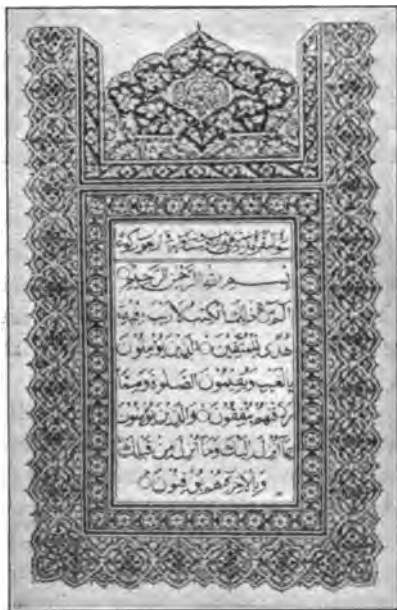 بِسْمِ اللهِ الرَّحْمٰنِ الرَّحِيْمِ
الٓمّٓ ذٰلِكَ الْكِتٰبُ لَا رَيْبَ فِيْهِ
هُدًى لِّلْمُتَّقِيْنَ الَّذِيْنَ يُؤْمِنُوْنَ
بِالْغَيْبِ وَيُقِيْمُوْنَ الصَّلٰوةَ وَمِمَّا
رَزَقْنٰهُمْ يُنْفِقُوْنَ وَالَّذِيْنَ يُؤْمِنُوْنَ
بِمَآ اُنْزِلَ اِلَيْكَ وَمَآ اُنْزِلَ مِنْ قَبْلِكَ
وَبِالْاٰخِرَةِ هُمْ يُوْقِنُوْنَ